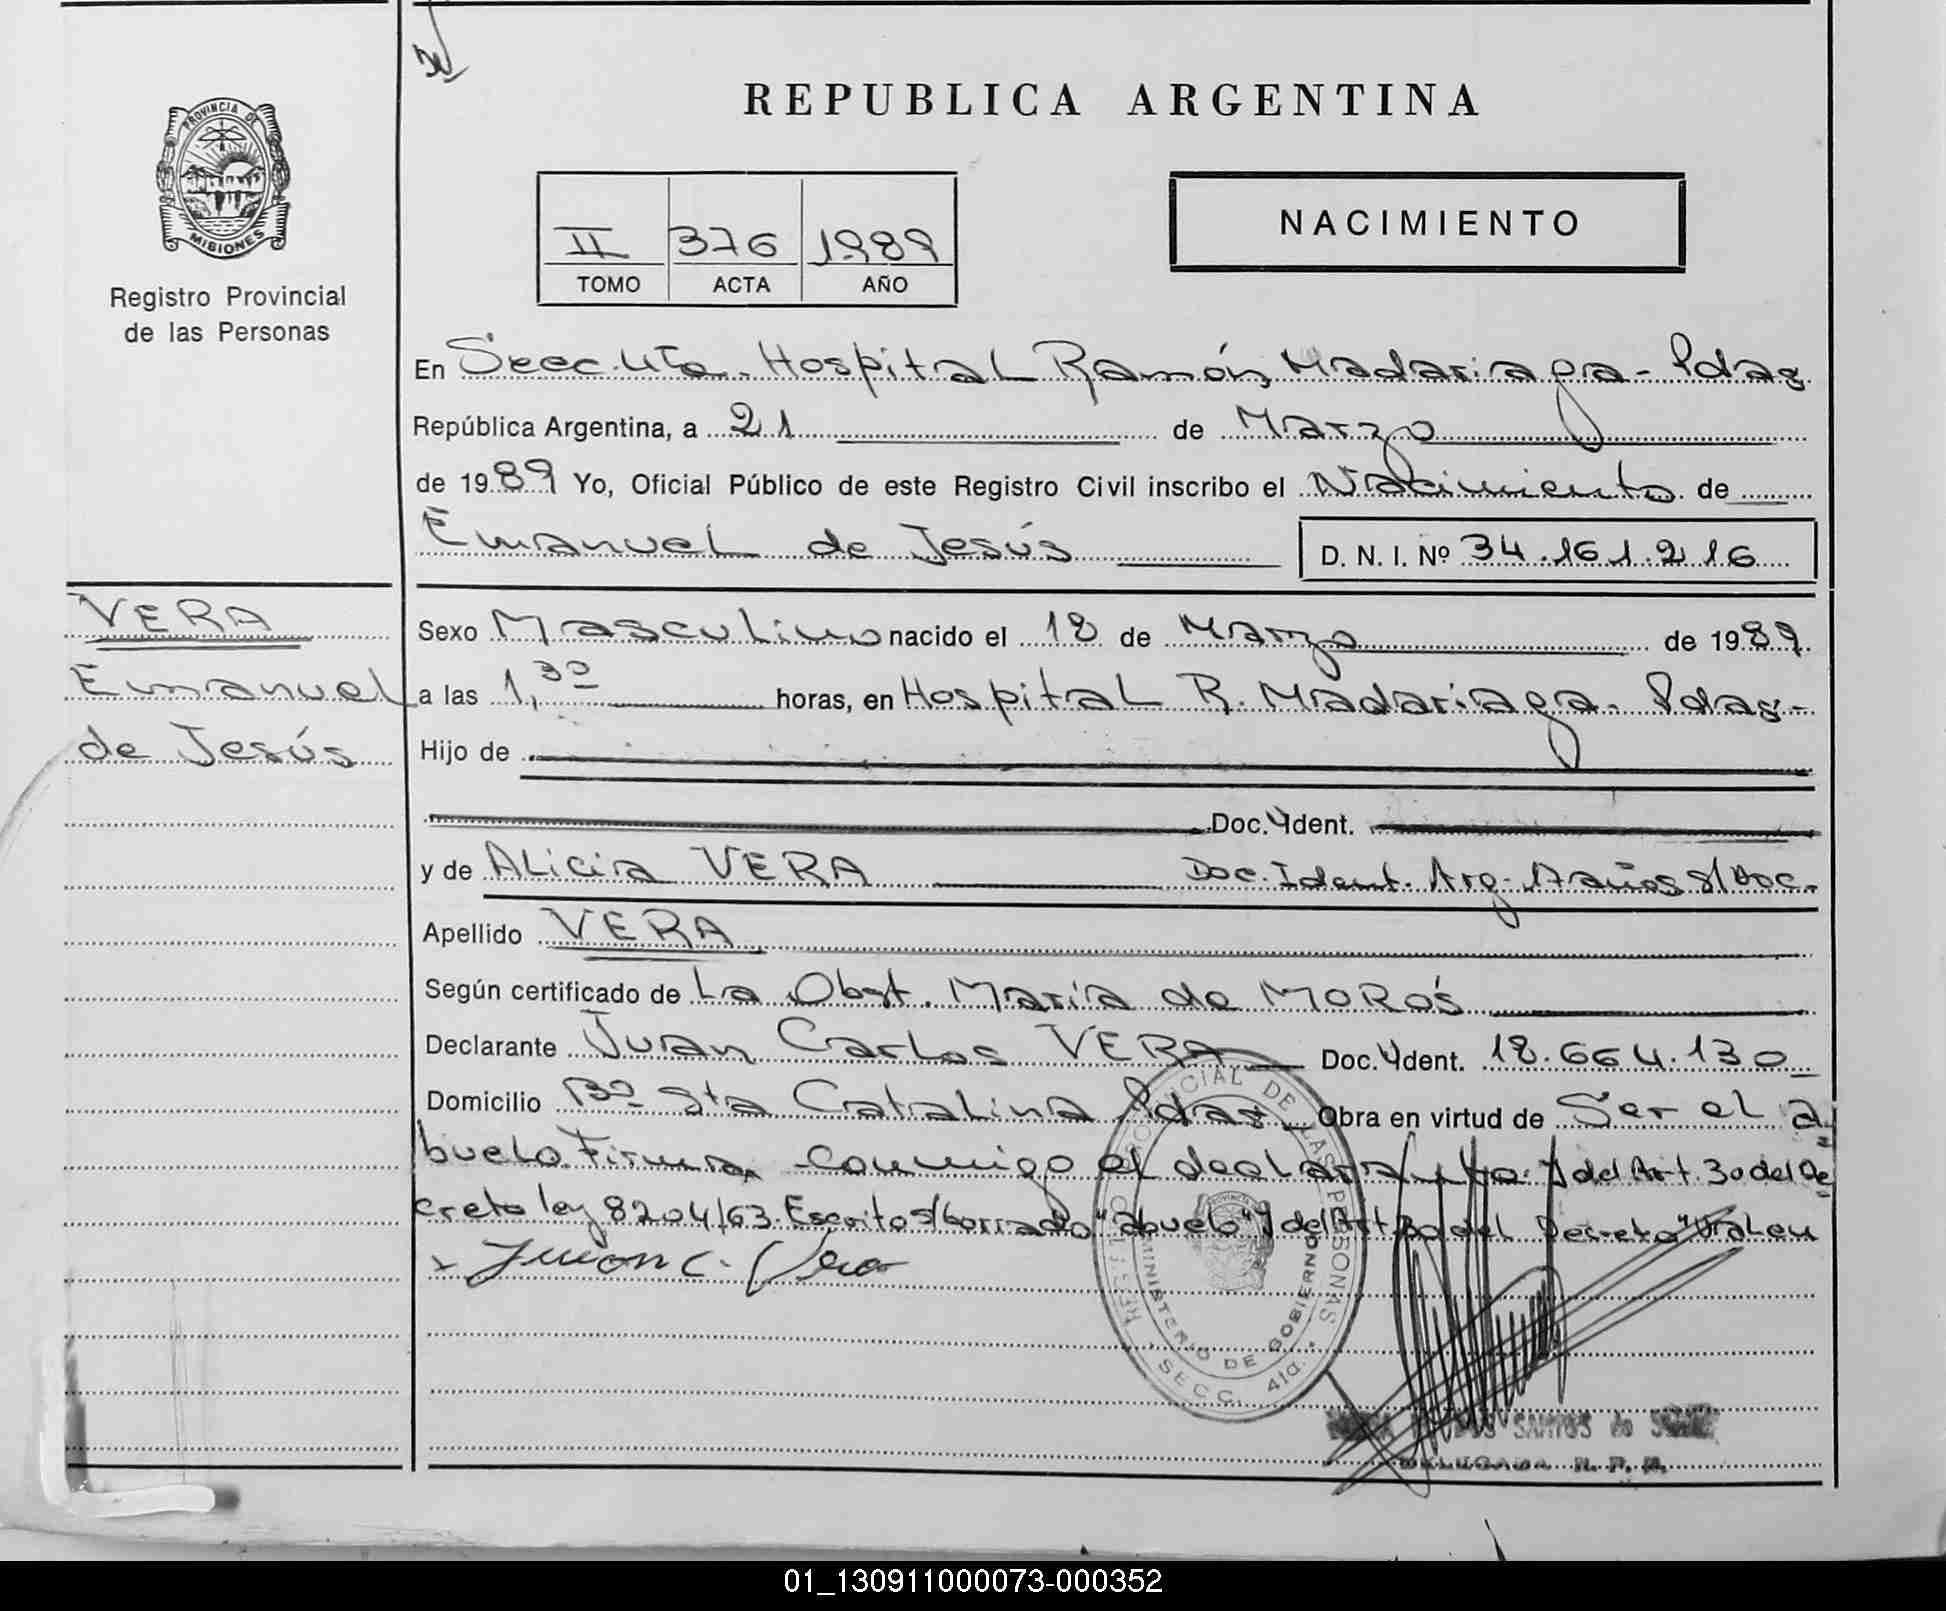 REPUBLICA ARGENTINA
PROVINCIA DE
MISIONES
Registro Provincial
de las Personas
II 376 1989
TOMO ACTA AÑO
NACIMIENTO
En Secc. 4ta. Hospital Ramón Madariaga - Pdas
República Argentina, a 21 de Marzo
de 1989 Yo, Oficial Público de este Registro Civil inscribo el Nacimiento de
Emanuel de Jesús D. N. I. Nº 34.161.216
VERA
Emanuel
de Jesús
Sexo Masculino nacido el 18 de Marzo de 1989.
a las 1,30 horas, en Hospital R. Madariaga - Pdas -
Hijo de
Doc. Ident.
y de Alicia VERA Doc. Ident. Arg. años s/Doc.
Apellido VERA
Según certificado de La Obst. María de MOROS
Declarante Juan Carlos VERA Doc. Ident. 18.664.130
Domicilio Bº Sta Catalina Pdas Obra en virtud de Ser el a=
buelo. Firma conmigo el declarante. y del Art. 30 del De=
creto ley 8204/63. Escrito s/borrado "abuelo" y del Art 30 del Decreto "Valen
Juan C. Vera
REGISTRO PROVINCIAL DE LAS PERSONAS
MINISTERIO DE GOBIERNO
SECC. 4ta.
SANTOS de
DELEGADA R. P. P.
01_130911000073-000352